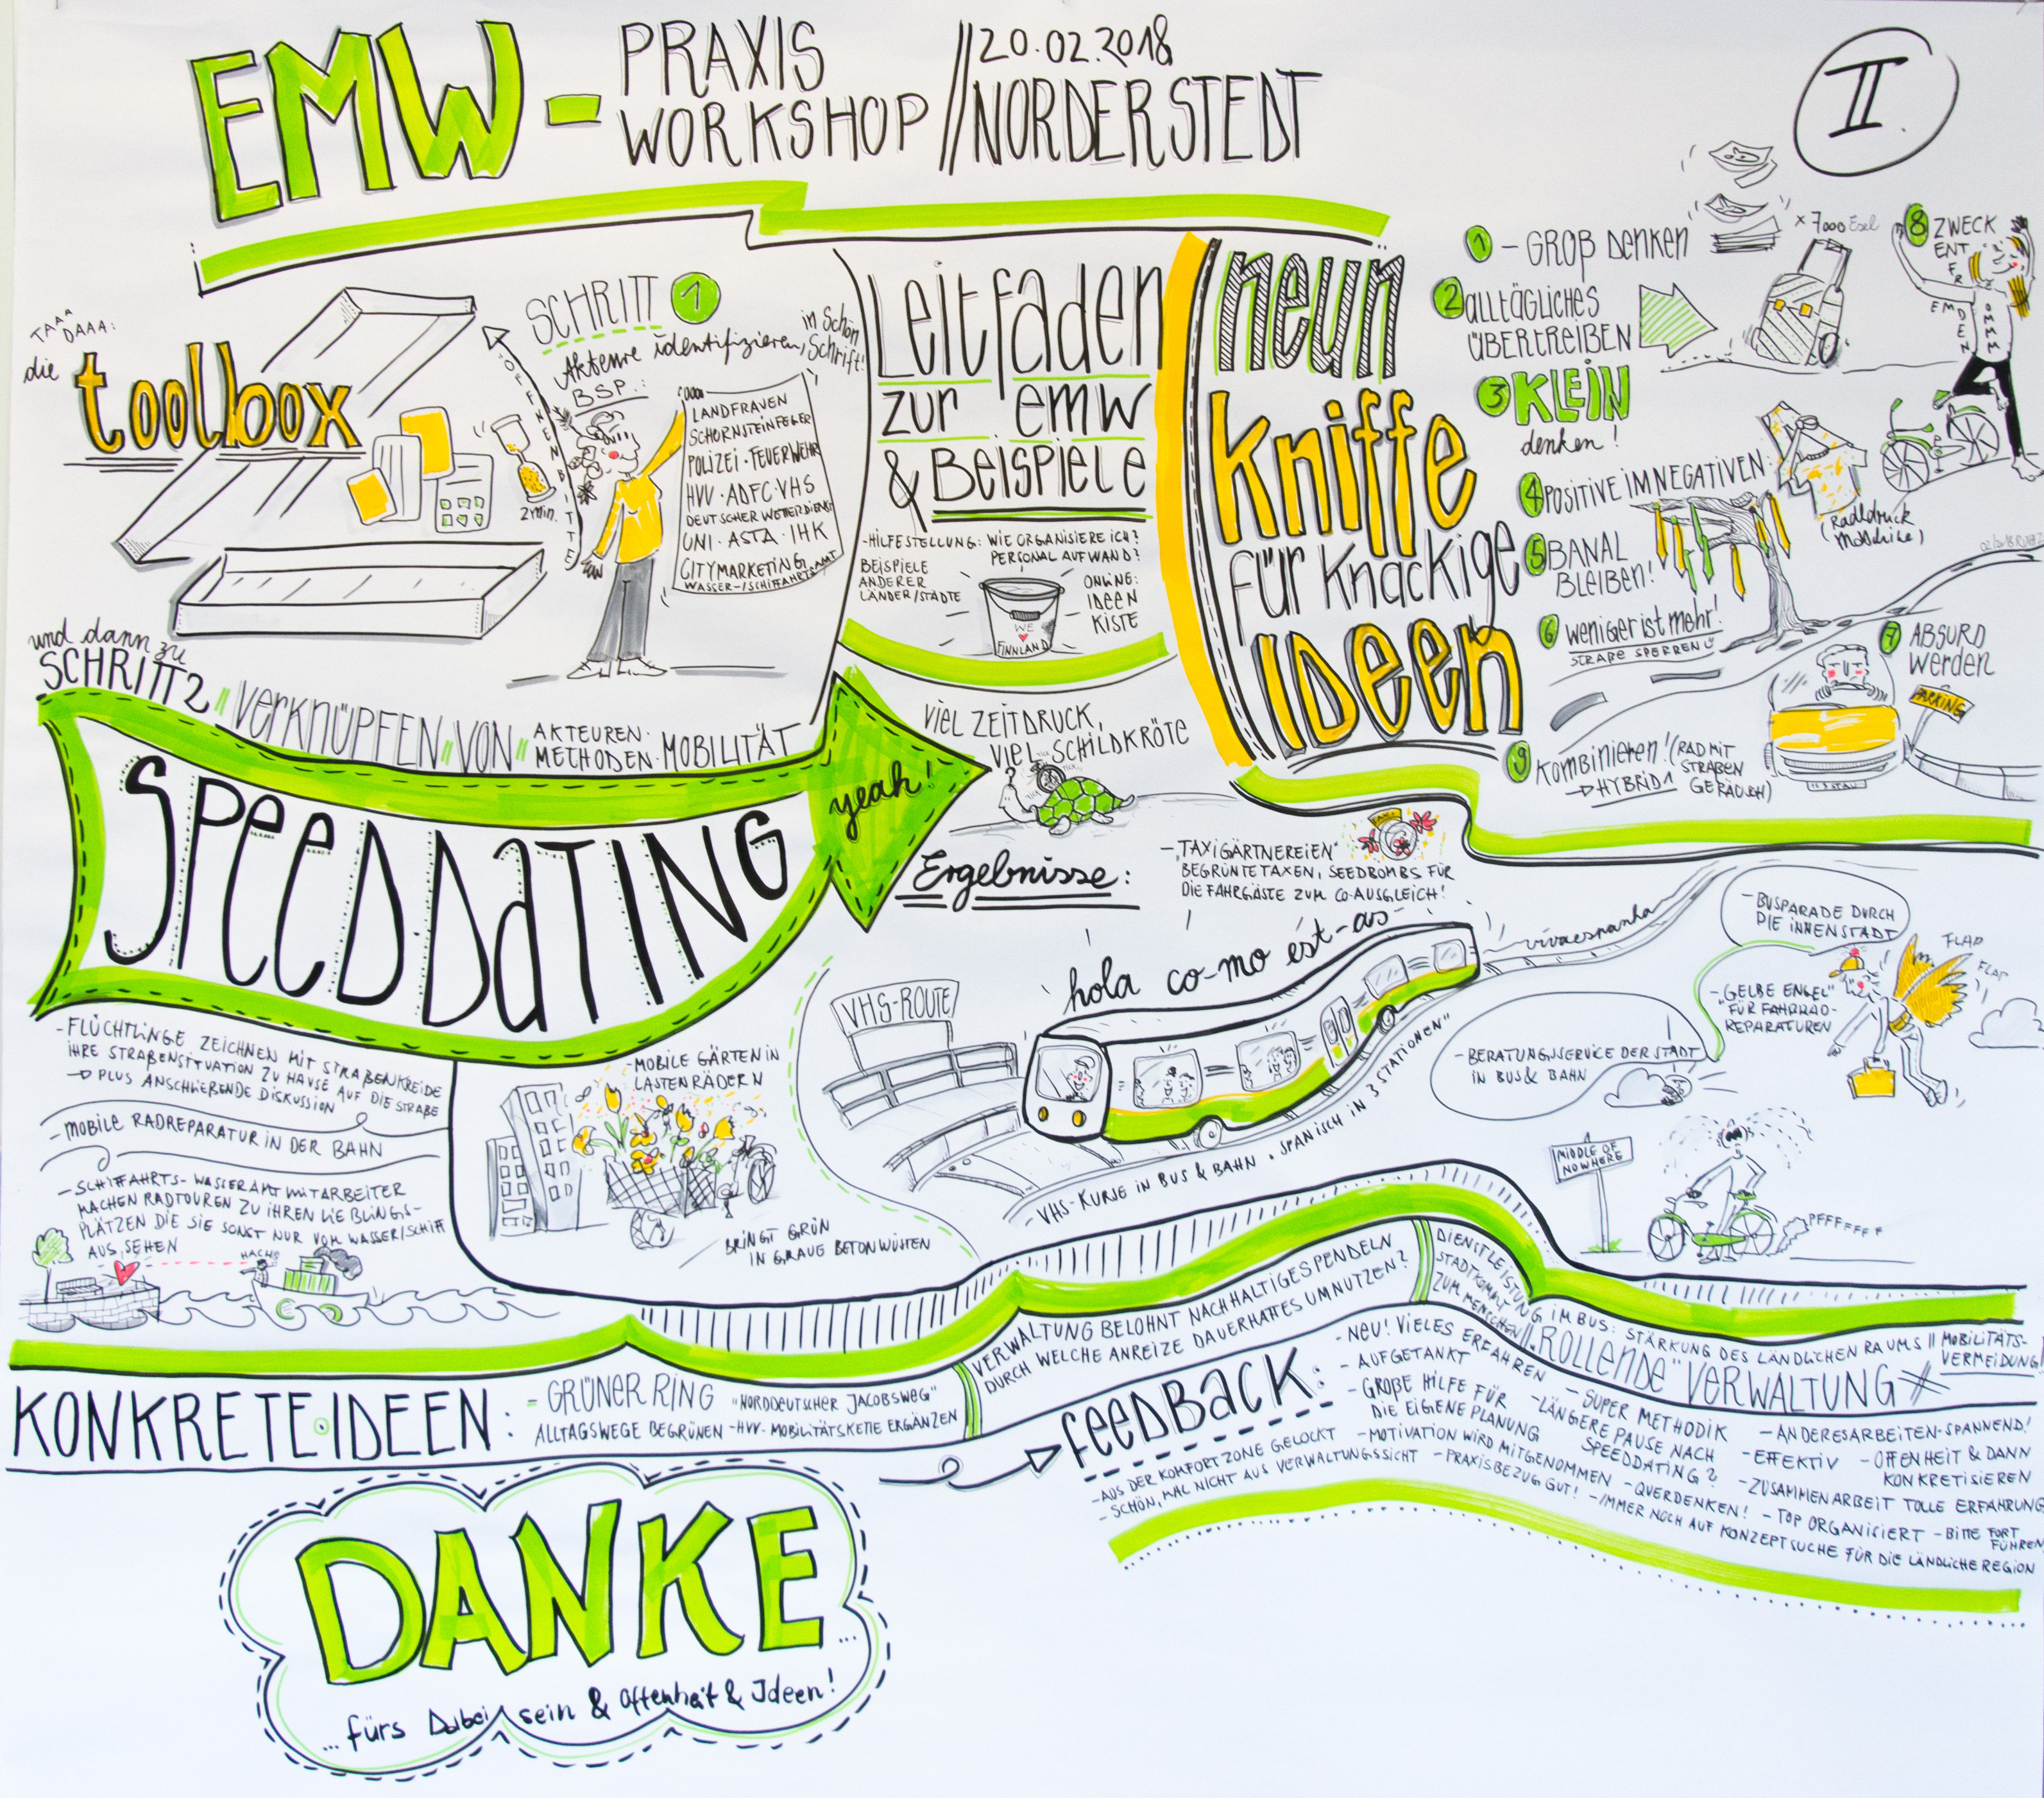 EMW -
PRAXIS
WORKSHOP
// 20.02.2018
NORDERSTEDT
II.
TAAA
DAAA:
die
toolbox
ÖFFNEN BITTE
2 min.
SCHRITT 1
Akteure identifizieren,
in Schön
Schrift!
BSP.:
LANDFRAUEN
SCHORNSTEINFEGER
POLIZEI · FEUERWEHR
HVV · ADFC · VHS
DEUTSCHER WETTERDIENST
UNI · ASTA · IHK
CITYMARKETING
WASSER-/SCHIFFAHRTSAMT
Leitfaden
zur emw
& Beispiele
- HILFESTELLUNG: WIE ORGANISIERE ICH?
PERSONALAUFWAND?
BEISPIELE
ANDERER
LÄNDER/STÄDTE
WE
FINNLAND
ONLINE:
IDEEN
KISTE
neun
kniffe
für knackige
IDeen
1 - GROß DENKEN
x 7000 Esel
2 alltägliches
übertreiben
3 KLEIN
denken!
4 POSITIVE IM NEGATIVEN
(Radldruck
5 BANAL
BLEIBEN!
6 weniger ist mehr!
STRAßE SPERREN
7 ABSURD
werden
PARKING
8 ZWECK
ENT
FR
EMDEN
OMMM
9 Kombinieren! (RAD MIT
STRAßEN
GERÄUSCH)
HYBRID
und dann zu
SCHRITT 2
"VERKNÜPFEN" VON "
AKTEUREN·
METHODEN·MOBILITÄT
SPEEDDATING
yeah!
VIEL ZEITDRUCK,
VIEL SCHILDKRÖTE
Ergebnisse:
- "TAXIGÄRTNEREIEN"
BEGRÜNTE TAXEN, SEEDBOMBS FÜR
DIE FAHRGÄSTE ZUM CO-AUSGLEICH!
TAXI
- FLÜCHTLINGE ZEICHNEN MIT STRAßENKREIDE
IHRE STRAßENSITUATION ZU HAUSE AUF DIE STRAßE
PLUS ANSCHLIEßENDE DISKUSSION
- MOBILE RADREPARATUR IN DER BAHN
- SCHIFFAHRTS- WASSERAMT MITARBEITER
MACHEN RADTOUREN ZU IHREN LIEBLINGS-
PLÄTZEN DIE SIE SONST NUR VOM WASSER/SCHIFF
AUS SEHEN
HACH!
- MOBILE GÄRTEN IN
LASTENRÄDERN
BRINGT GRÜN
IN GRAUE BETONWÜSTEN
VHS-ROUTE
hola co-mo est-as
vivaespanha
- VHS-KURSE IN BUS & BAHN · SPANISCH IN 3 STATIONEN"
- BUSPARADE DURCH
DIE INNENSTADT
FLAP
FLAP
- "GELBE ENGEL"
FÜR FAHRRAD-
REPARATUREN
- BERATUNGSSERVICE DER STADT
IN BUS & BAHN
MIDDLE OF
NOWHERE
PFFFFFFF
KONKRETE·IDEEN:
- GRÜNER RING "NORDDEUTSCHER JACOBSWEG"
ALLTAGSWEGE BEGRÜNEN - HVV- MOBILITÄTSKETTE ERGÄNZEN
VERWALTUNG BELOHNT NACHHALTIGES PENDELN
DURCH WELCHE ANREIZE DAUERHAFTES UMNUTZEN?
DIENSTLEISTUNG IM BUS: STÄRKUNG DES LÄNDLICHEN RAUMS || MOBILITÄTS-
VERMEIDUNG!
STADT KOMMT
ZUM MENSCHEN // "ROLLENDE" VERWALTUNG
FEEDBACK:
- NEU! VIELES ERFAHREN
- AUFGETANKT
- GROßE HILFE FÜR
DIE EIGENE PLANUNG
- SUPER METHODIK
- LÄNGERE PAUSE NACH
SPEEDDATING?
- ANDERES ARBEITEN - SPANNEND!
- EFFEKTIV - OFFENHEIT & DANN
KONKRETISIEREN
- AUS DER KOMFORTZONE GELOCKT - MOTIVATION WIRD MITGENOMMEN - QUERDENKEN! - ZUSAMMENARBEIT TOLLE ERFAHRUNG
- SCHÖN, MAL NICHT AUS VERWALTUNGSSICHT - PRAXISBEZUG GUT! - IMMER NOCH AUF KONZEPTSUCHE FÜR DIE LÄNDLICHE REGION
- TOP ORGANISIERT - BITTE FORT
FÜHREN
DANKE...
...fürs Dabei sein & Offenheit & Ideen!